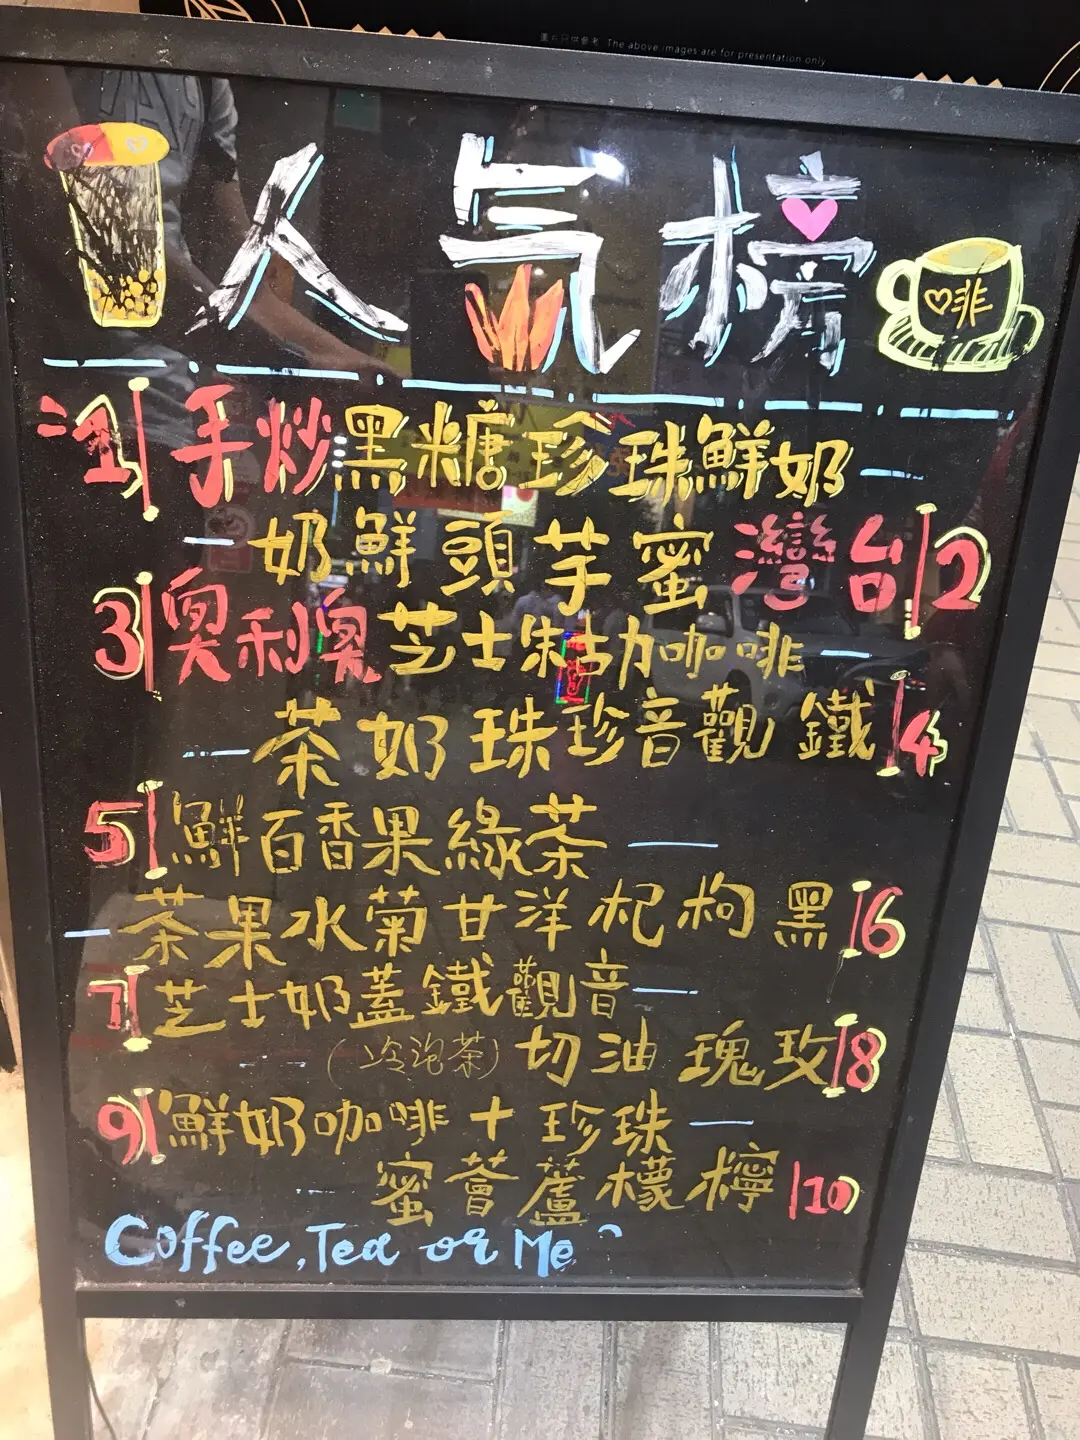 圖片只供參考 The above images are for presentation only
人气榜
啡
1 手炒黑糖珍珠鮮奶
2 台灣蜜芋頭鮮奶
3 奧利奧芝士朱古力咖啡
4 鐵觀音珍珠奶茶
5 鮮百香果綠茶
6 黑枸杞洋甘菊水果茶
7 芝士奶蓋鐵觀音
8 玫瑰油切 (冷泡茶)
9 鮮奶咖啡+珍珠
10 檸檬蘆薈蜜
Coffee, Tea or Me